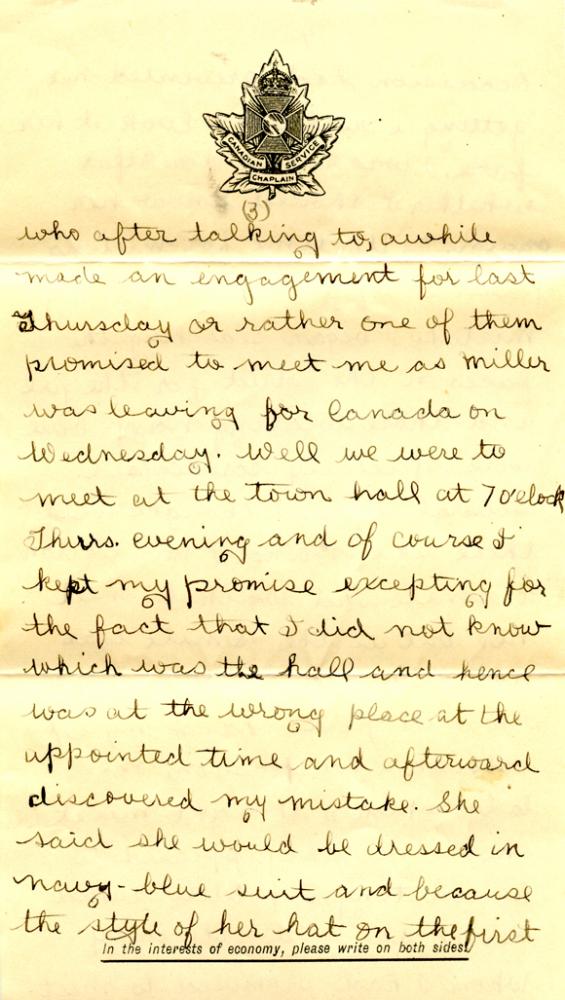 CANADIAN SERVICE
CHAPLAIN
(3)
who after talking to, awhile
made an engagement for last
Thursday or rather one of them
promised to meet me as Miller
was leaving for Canada on
Wednesday. Well we were to
meet at the town hall at 7 o'clock
Thurs. evening and of course I
kept my promise excepting for
the fact that I did not know
which was the hall and hence
was at the wrong place at the
appointed time and afterward
discovered my mistake. She
said she would be dressed in
navy-blue suit and because
the style of her hat on the first
In the interests of economy, please write on both sides.